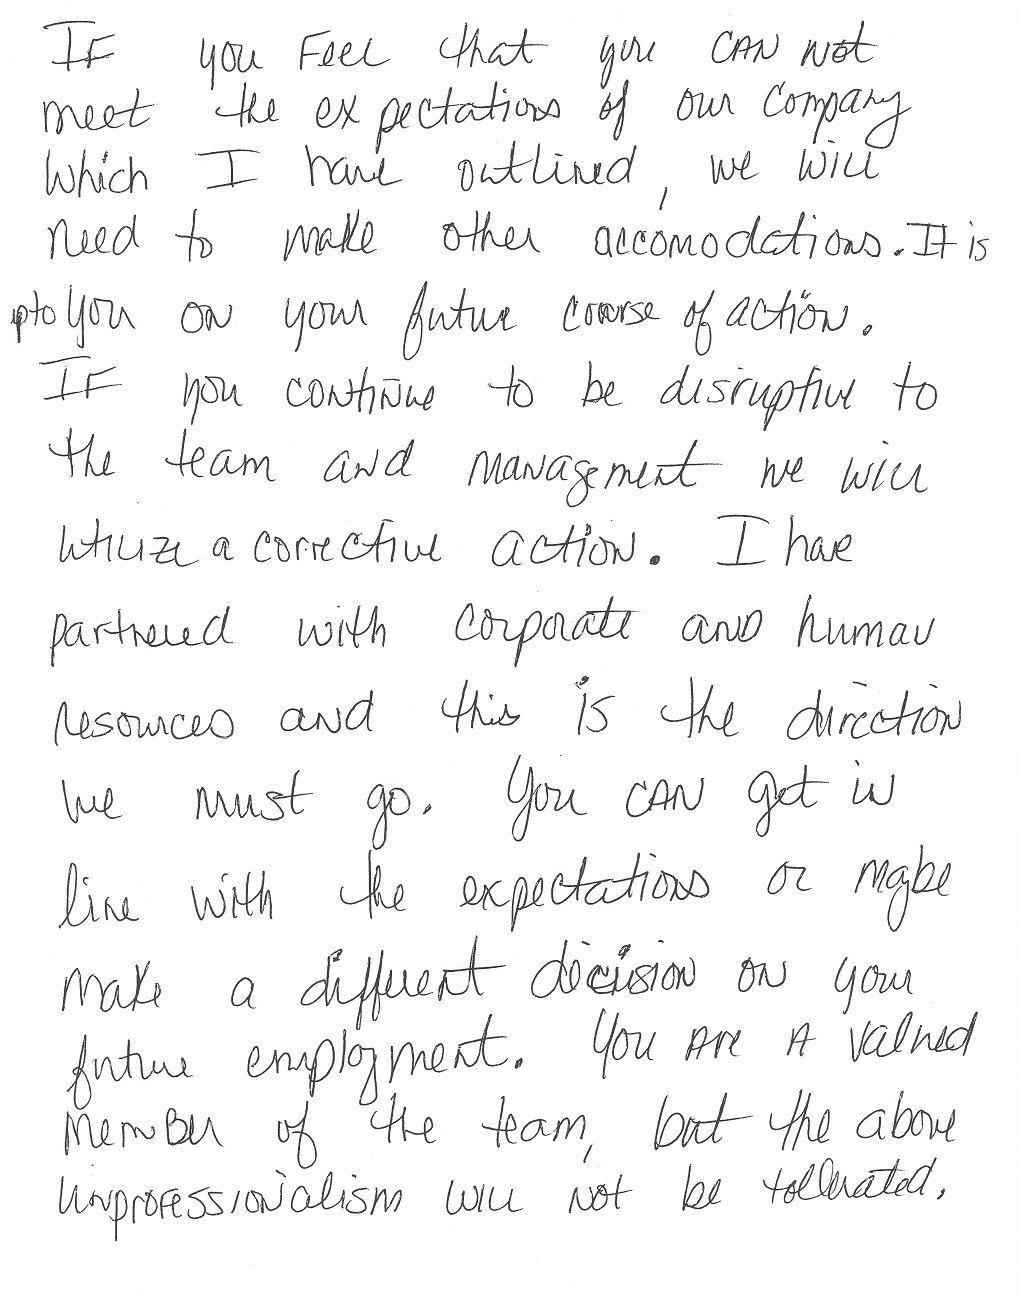 IF you Feel that you CAN Not
meet the expectations of our Company
which I have outlined, we will
need to make other accomodations. It is
upto you on your future course of action.
IF you continue to be disruptive to
the team and management we will
utilize a corrective action. I have
partnered with corporate and human
resources and this is the direction
we must go. You CAN get in
line with the expectations or maybe
make a different decision on your
future employment. You are A valued
member of the team, but the above
unprofessionalism will not be tollerated.